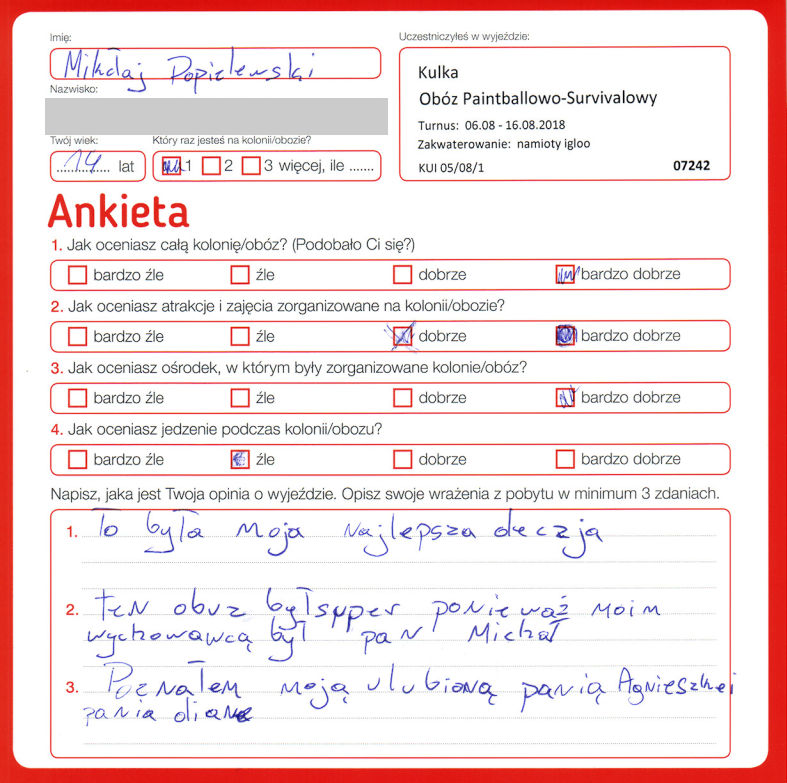 Imię:
Mikołaj Popielewski
Nazwisko:
Twój wiek:
14 lat
Który raz jesteś na kolonii/obozie?
1 2 3 więcej, ile .......
Uczestniczyłeś w wyjeździe:
Kulka
Obóz Paintballowo-Survivalowy
Turnus: 06.08 - 16.08.2018
Zakwaterowanie: namioty igloo
KUI 05/08/1 07242
Ankieta
1. Jak oceniasz całą kolonię/obóz? (Podobało Ci się?)
bardzo źle źle dobrze bardzo dobrze
2. Jak oceniasz atrakcje i zajęcia zorganizowane na kolonii/obozie?
bardzo źle źle dobrze bardzo dobrze
3. Jak oceniasz ośrodek, w którym były zorganizowane kolonie/obóz?
bardzo źle źle dobrze bardzo dobrze
4. Jak oceniasz jedzenie podczas kolonii/obozu?
bardzo źle źle dobrze bardzo dobrze
Napisz, jaka jest Twoja opinia o wyjeździe. Opisz swoje wrażenia z pobytu w minimum 3 zdaniach.
1. To była moja najlepsza deczja
2. ten obuz był super ponieważ moim
wychowawcą był pan Michał
3. Poznałem moją ulubioną panią Agnieszke i
pania diane